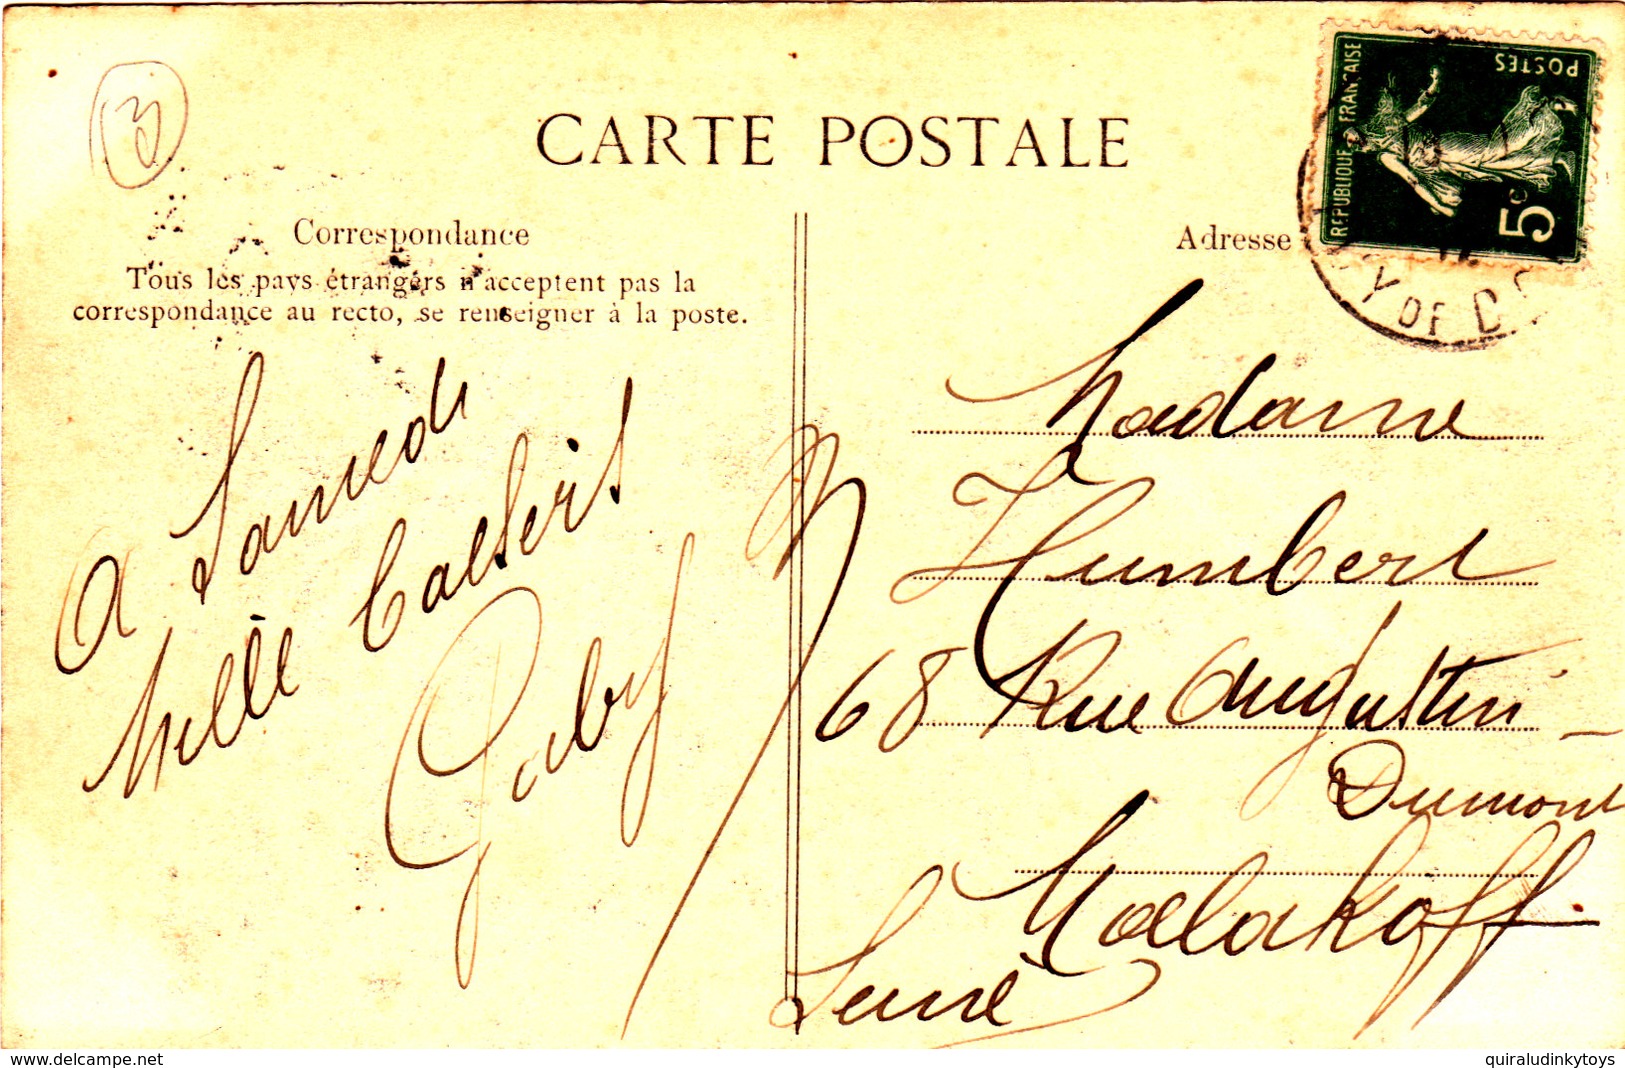 3
CARTE POSTALE
Correspondance
Tous les pays étrangers n'acceptent pas la
correspondance au recto, se renseigner à la poste.
Adresse
REPUBLIQUE FRANÇAISE
POSTES
5
Y DE D
A Samedi
Mille baisers
Gaby
Madame
Humbert
68 Rue Augustin-
Dumont
Malakoff
Seine
www.delcampe.net
quiraludinkytoys